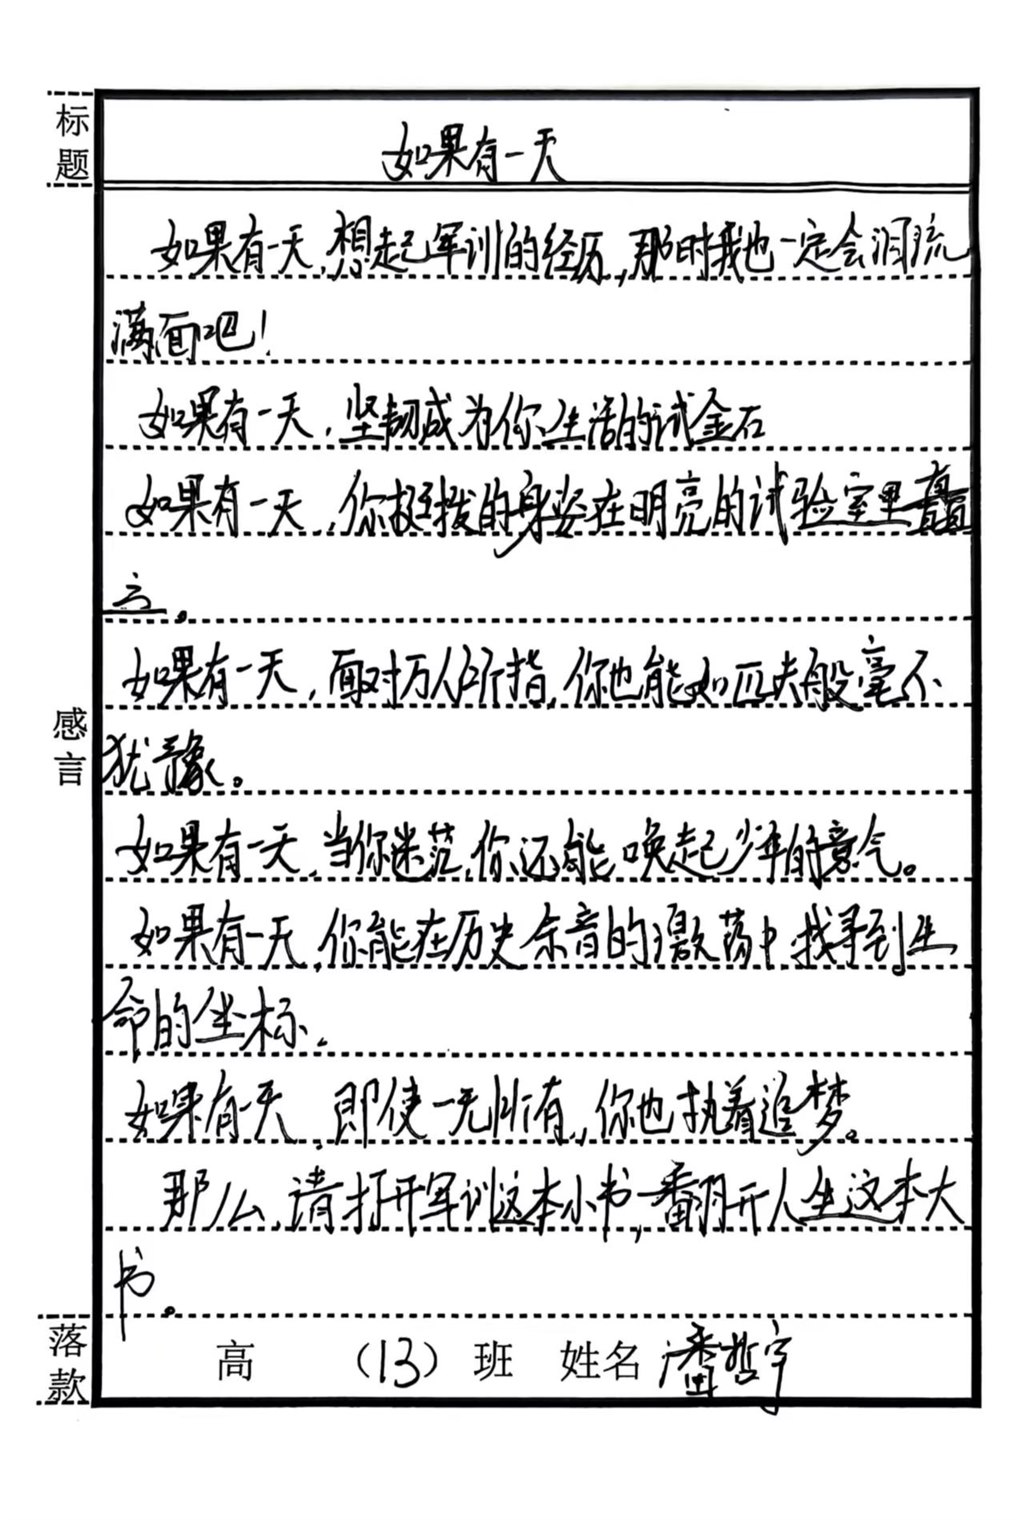 标题
如果有一天
如果有一天，想起军训的经历，那时我也一定会泪流
满面吧！
如果有一天，坚韧成为你生活的试金石
如果有一天，你挺拔的身姿在明亮的试验室里矗
立。
如果有一天，面对万人所指，你也能如匹夫般毫不
犹豫。
感言
如果有一天，当你迷茫，你还能唤起少年的意气。
如果有一天，你能在历史余音的激荡中找寻到生
命的坐标。
如果有一天，即使一无所有，你也执着追梦。
那么，请打开军训这本小书，翻开人生这本大
书。
落款
高 （13）班 姓名 潘哲宇